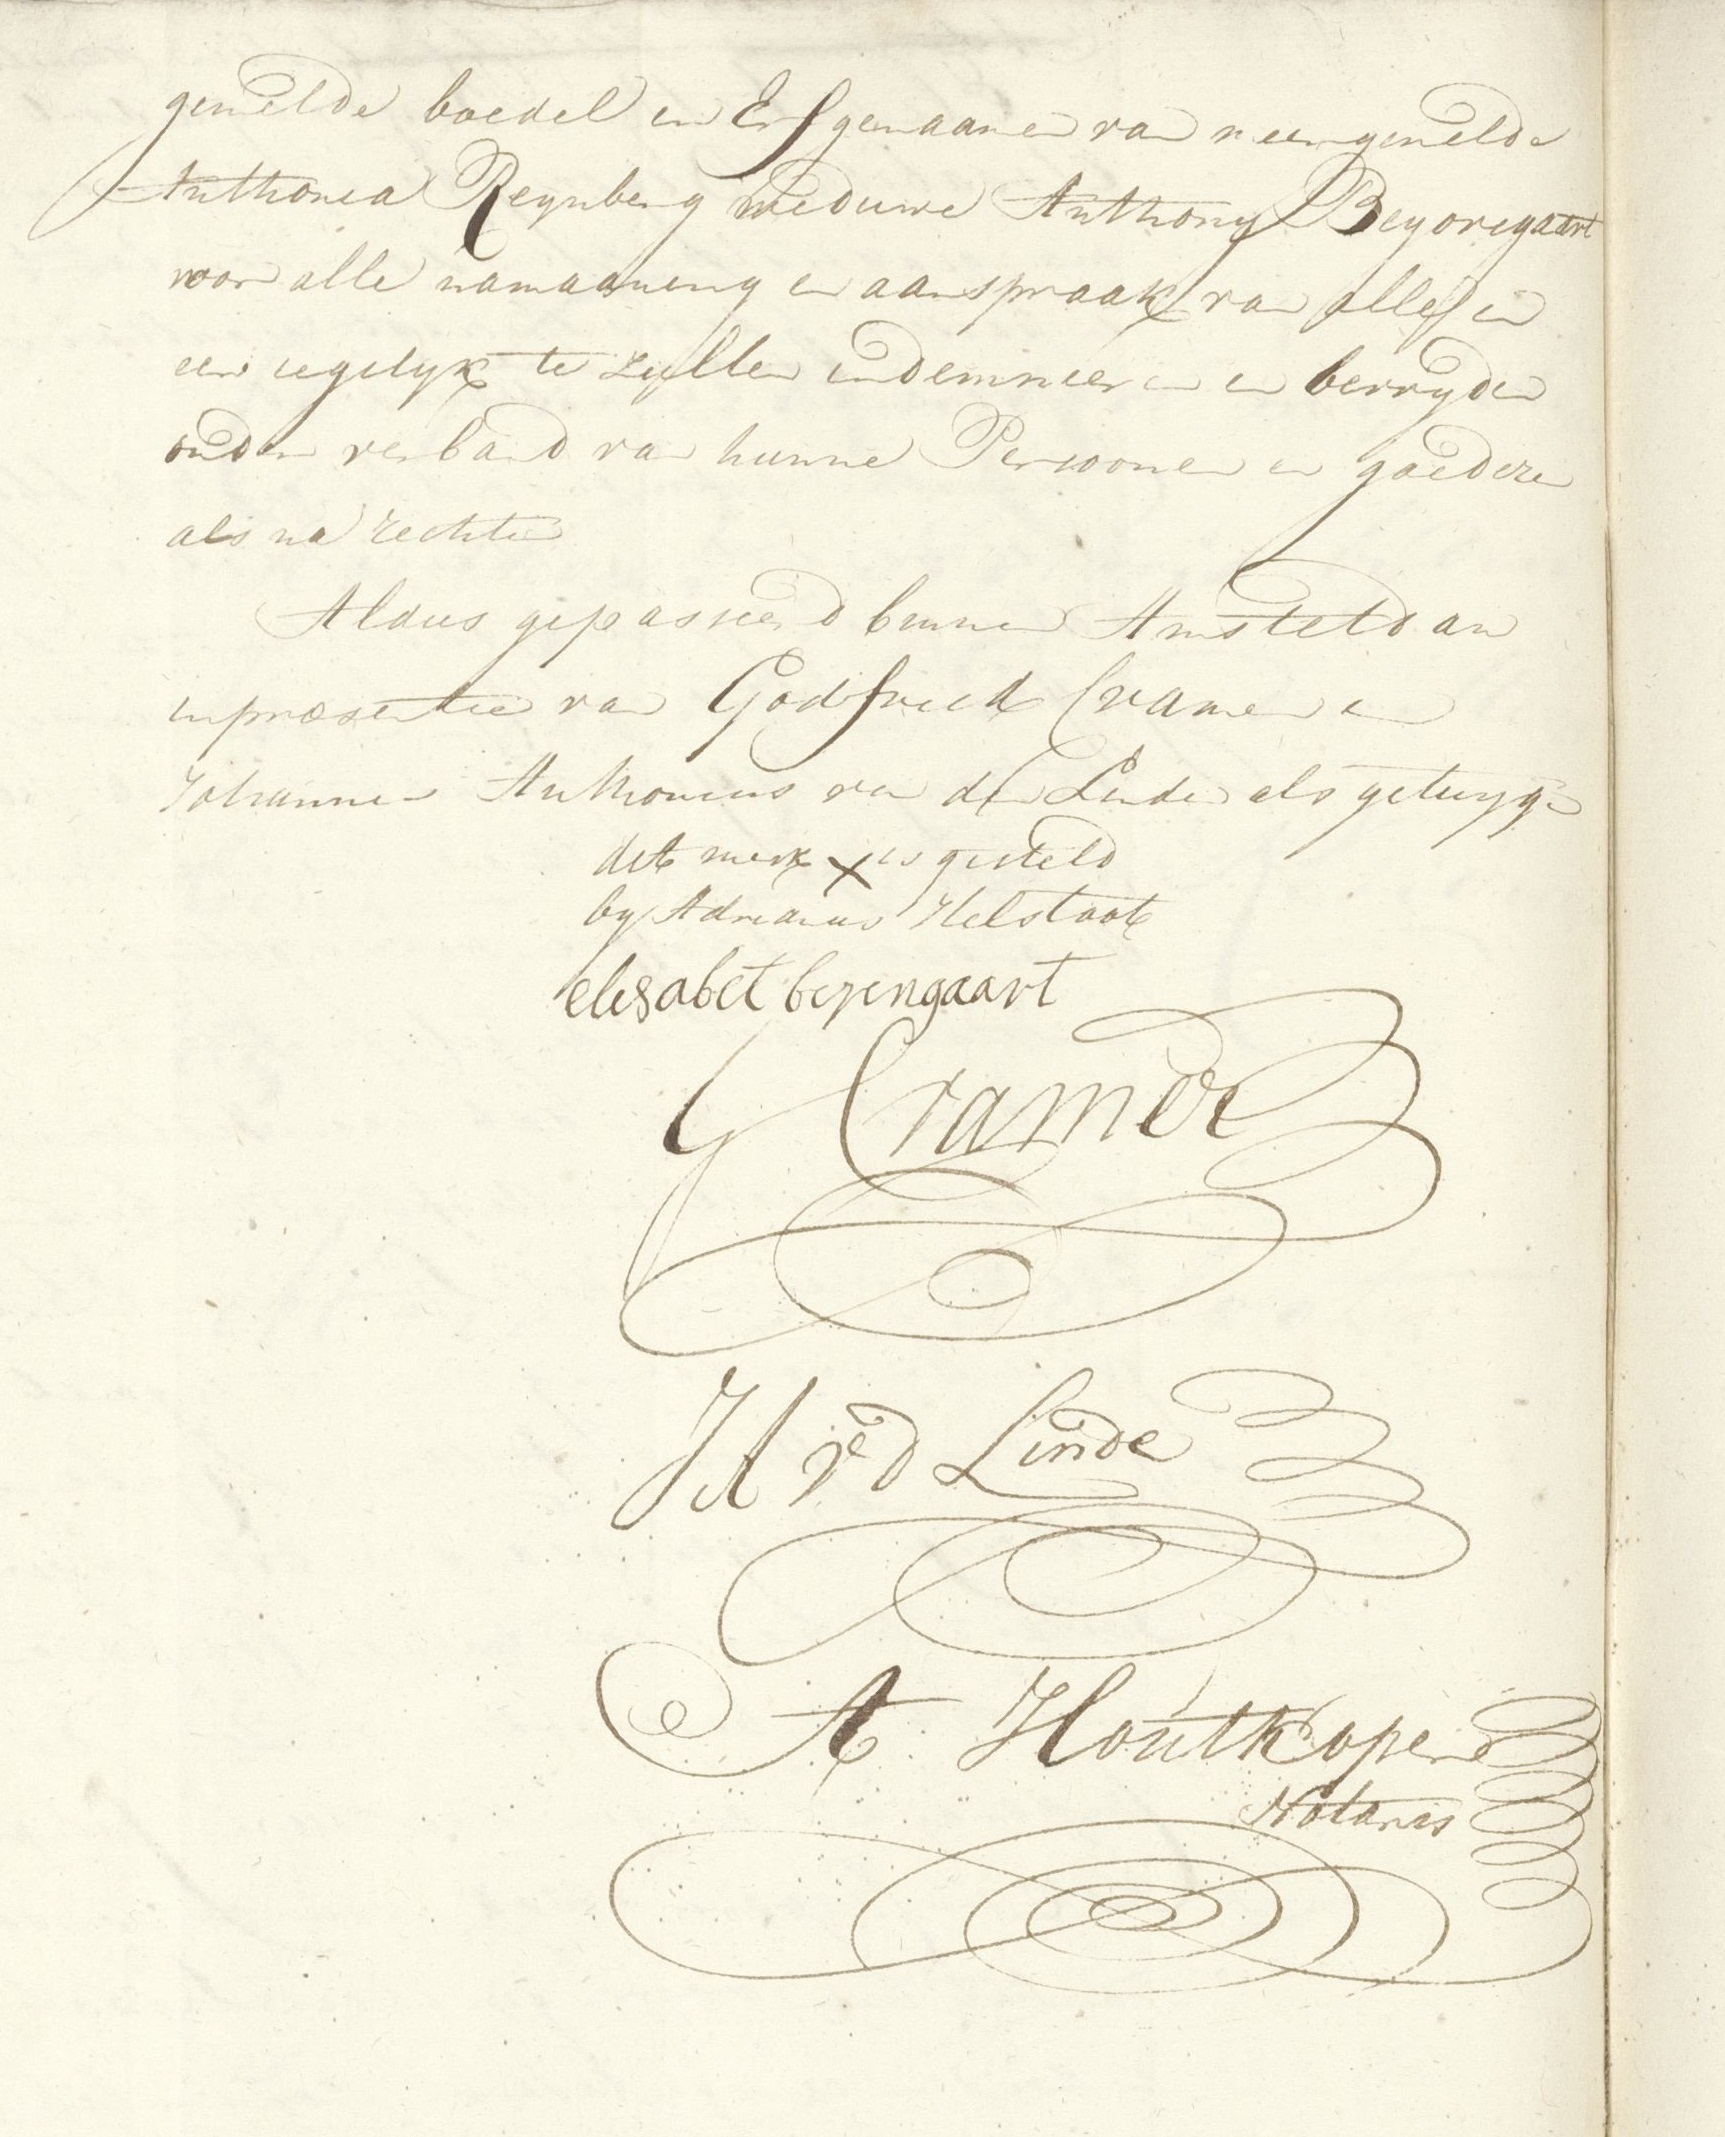 gemelde boedel en Erfgenaamen van meergemelde
Anthonia Reynberg weduwe Anthony Beyoregaart
voor alle namaaning en aanspraak van alle en
een iegelyk te zullen indemneeren en bevryden
onder verband van hunne Persoonen en goederen
als na rechten
Aldus gepasseerd binnen Amsteldam
in præsentie van Godfried Cramer en
Johannes Anthonius van der Linde als getuygen
dit merk X is gesteld
by Adrianus Helstoot
elisabet beyengaart
G Cramer
J A v d Linde
A Houtkoper
Notaris